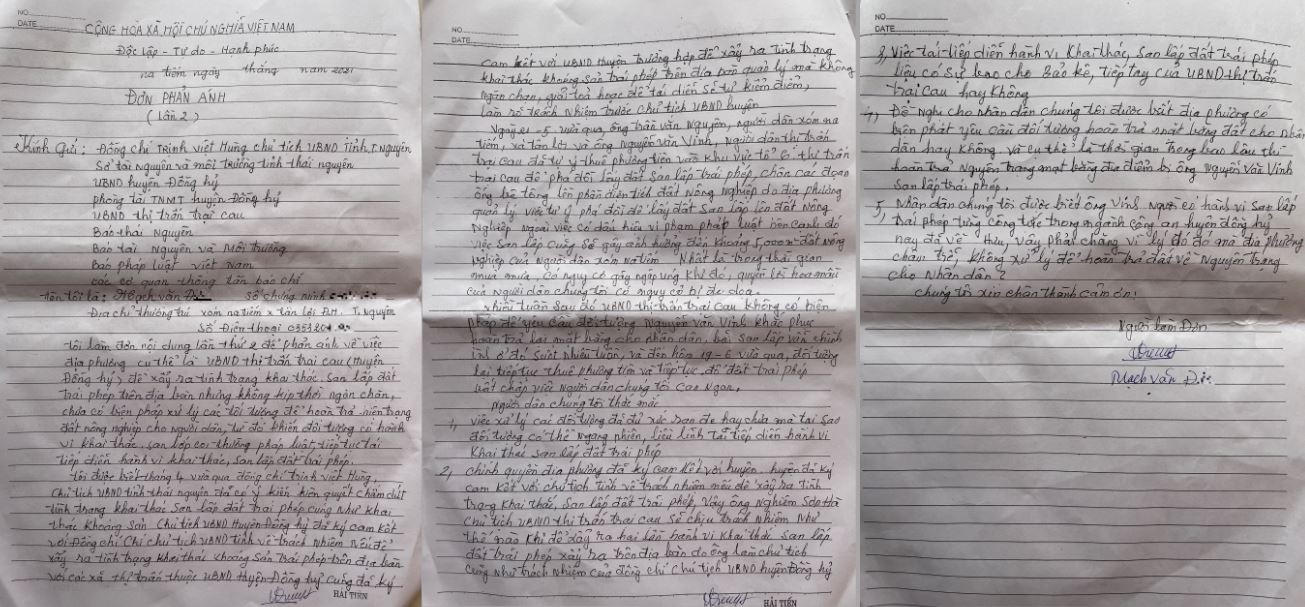 NO.
DATE
CỘNG HÒA XÃ HỘI CHỦ NGHĨA VIỆT NAM
Độc lập - Tự do - Hạnh phúc
na tiếm ngày tháng năm 2021
ĐƠN PHẢN ÁNH
(Lần 2)
Kính gửi: Đồng chí Trịnh Việt Hùng chủ tịch UBND Tỉnh T. Nguyên
Sở tài nguyên và môi trường tỉnh thái nguyên
UBND huyện Đồng hỷ
phòng tài TNMT huyện Đồng hỷ
UBND thị trấn trại cau
Báo thái Nguyên
Báo tài Nguyên và Môi trường
Báo pháp luật việt Nam
các cơ quan thông tấn báo chí
Tên tôi là: văn số chứng minh
Địa chỉ thường trú xóm na tiếm x tân lợi Đ.H. T. Nguyên
Số Điện thoại
tôi làm đơn nội dung lần thứ 2 để phản ánh về việc
địa phương cụ thể là UBND thị trấn trại cau (Huyện
Đồng hỷ) để xẩy ra tình trạng khai thác, san lấp đất
trái phép trên địa bàn nhưng không kịp thời ngăn chặn,
chưa có biện pháp xử lý các đối tượng để hoàn trả hiện trạng
đất nông nghiệp cho người dân, từ đó khiến đối tượng có hành
vi khai thác, san lấp coi thường pháp luật, tiếp tục tái
tiếp diễn hành vi khai thác, san lấp đất trái phép.
tôi được biết tháng 4 vừa qua đồng chí trịnh việt Hùng
Chủ tịch UBND tỉnh thái nguyên đã có ý kiến kiên quyết chấm dứt
tình trạng khai thác san lấp đất trái phép cũng như khai
thác khoáng sản Chủ tịch UBND Huyện Đồng hỷ đã ký cam kết
với Đồng chí Chủ tịch UBND tỉnh về trách nhiệm nếu để
xẩy ra tình trạng khai thác khoáng sản trái phép trên địa bàn
với các xã thị trấn thuộc UBND Huyện Đồng hỷ cũng đã ký
HẢI TIẾN
NO.
DATE
cam kết với UBND Huyện trường hợp để xẩy ra tình trạng
khai thác khoáng sản trái phép trên địa bàn quản lý mà không
ngăn chặn, giải toả hoặc để tái diễn sẽ tự kiểm điểm,
làm rõ trách Nhiệm trước chủ tịch UBND huyện
Ngày 21-5 vừa qua, ông trần văn Nguyên, người dân xóm na
tiếm, xã tân lợi và ông Nguyễn văn Vinh, Người dân thị trấn
trại cau đã tự ý thuê phương tiện vào khu vực tổ 6 thị trấn
trại cau để phá đồi lấy đất san lấp trái phép, chắn các đoạn
ống bê tông lên phần diện tích đất nông Nghiệp do địa phương
quản lý việc tự ý phá đồi để lấy đất san lấp lên đất Nông
Nghiệp ngoài việc có dấu hiệu vi phạm pháp luật bên cạnh đó
việc san lấp cũng sẽ gây ảnh hưởng đến khoảng 5.000m² đất nông
nghiệp của người dân xóm na tiếm Nhất là trong thời gian
mưa mưa, có nguy cơ gây ngập úng khi đó, quyền lợi hoa màu
của người dân chúng tôi có nguy cơ bị đe doạ.
Nhiều tuần sau đó UBND thị trấn trại cau không có biện
pháp để yêu cầu đối tượng Nguyễn văn Vinh khắc phục
hoàn trả lại mặt bằng cho nhân dân, bãi san lấp vẫn chình
ình ở đó suốt nhiều tuần, và đến hôm 19-6 vừa qua, đối tượng
lại tiếp tục thuê phương tiện và tiếp tục đổ đất trái phép
bất chấp việc người dân chúng tôi can ngăn,
Người dân chúng tôi thắc mắc
1, việc xử lý các đối tượng đã đủ sức răn đe hay chưa mà tại sao
đối tượng có thể ngang nhiên, liều lĩnh tái tiếp diễn hành vi
khai thác san lấp đất trái phép
2, chính quyền địa phương đã ký cam kết với huyện, huyện đã ký
cam kết với chủ tịch tỉnh về trách nhiệm nếu để xẩy ra tình
trạng khai thác, san lấp đất trái phép, vậy ông Nghiêm
Chủ tịch UBND thị trấn trại cau sẽ chịu trách Nhiệm Như
thế nào khi để xẩy ra hai lần hành vi khai thác san lấp
đất trái phép xẩy ra trên địa bàn do ông làm chủ tịch
cũng như trách nhiệm của đồng chí Chủ tịch UBND huyện Đồng hỷ
HẢI TIẾN
NO.
DATE
3, Việc tái tiếp diễn hành vi khai thác, san lấp đất trái phép
liệu có sự bao che Bảo kê, tiếp tay của UBND thị trấn
trại cau hay không
4) Đề Nghị cho nhân dân chúng tôi được biết địa phương có
biện pháp yêu cầu đối tượng hoàn trả mặt bằng đất cho nhân
dân hay không và cụ thể là thời gian trong bao lâu thì
hoàn trả nguyên trạng mặt bằng địa điểm bị ông Nguyễn văn Vinh
san lấp trái phép.
5, Nhân dân chúng tôi được biết ông Vinh, người có hành vi san lấp
trái phép từng công tác trong ngành công an huyện đồng hỷ
nay đã về hưu, vậy phải chăng vì lý do đó mà địa phương
chậm trễ, không xử lý để hoàn trả đất về nguyên trạng
cho nhân dân?
chúng tôi xin chân thành cảm ơn!
Người làm Đơn
văn